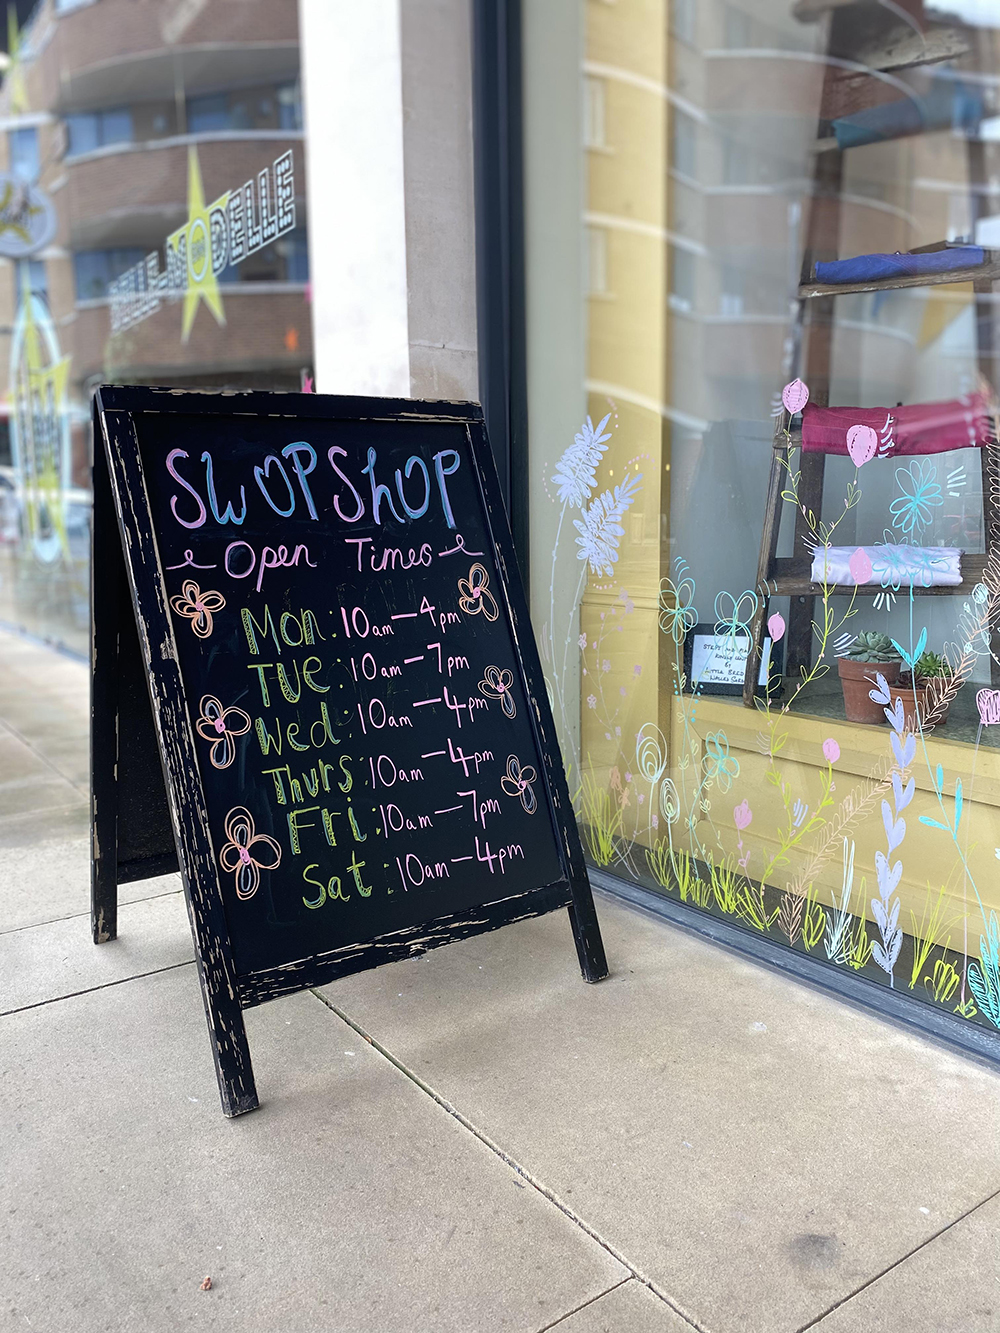 SWOPSHOP
Open Times
Mon: 10am—4pm
TUE: 10am—7pm
Wed: 10am—4pm
Thurs: 10am—4pm
Fri: 10am—7pm
Sat: 10am—4pm
MODELLE
LITTLE